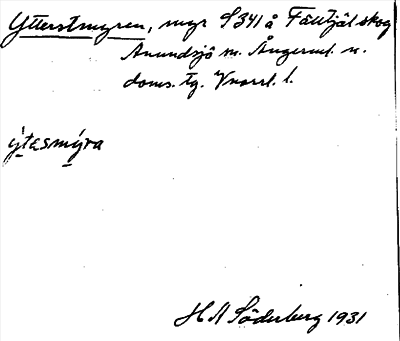 Ytterstmyren, myr S341 å Fälltjäl skog
Anundsjö sn. Ångerml. n.
doms. tg. Vnorrl. l.
ýtesmýra
H A Söderberg 1931